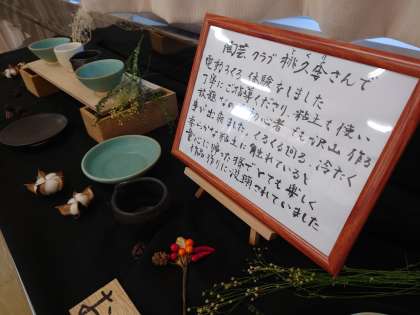 陶芸 クラブ 桃久さんで
電動ろくろ 体験をしました
丁寧にご指導くださり 粘土も使い
放題なので初心者でも沢山作る
事が出来ました。くるくる回る、冷たく
柔らかな粘土に触れていると
童心に帰った様で とても楽しく
作品作りに没頭されていました